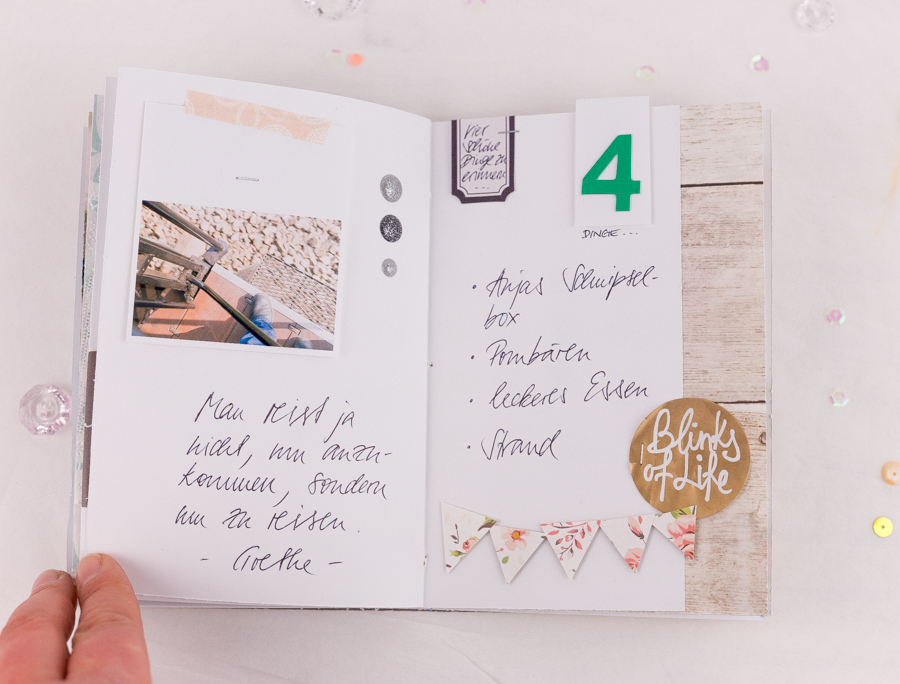 Man reist ja
nicht, um anzu-
kommen, sondern
um zu reisen.
- Goethe -
Vier
schöne
Dinge zu
erinnern
...
4
DINGE...
· Anjas Schnipsel-
box
· Pombären
· leckeres Essen
· Strand
Blinks
of Life